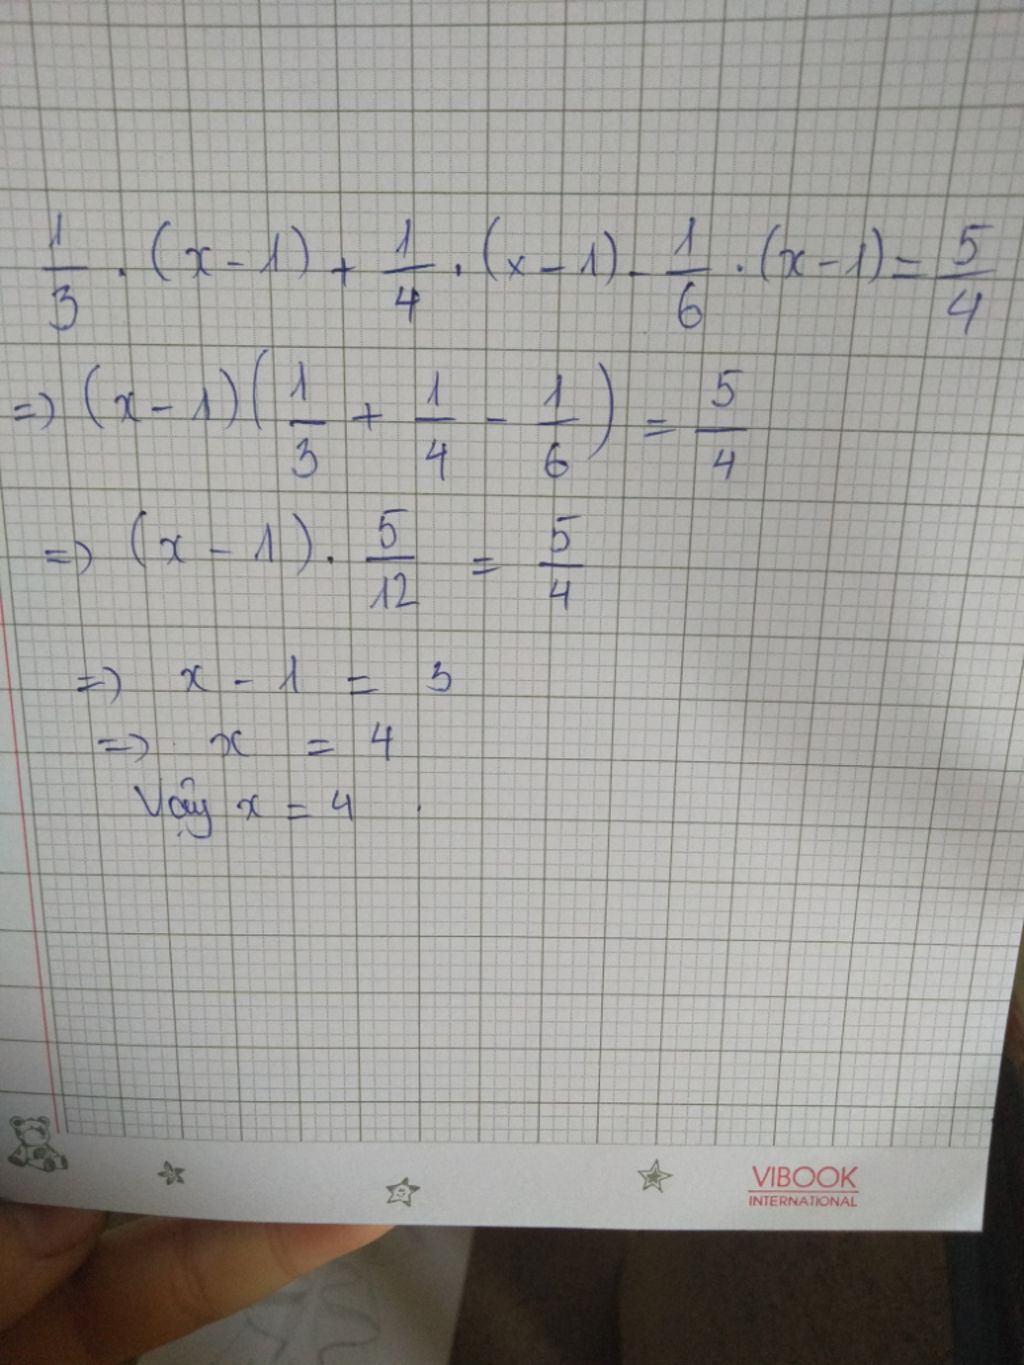 1/3 . (x - 1) + 1/4 . (x - 1) - 1/6 . (x - 1) = 5/4
=> (x - 1)(1/3 + 1/4 - 1/6) = 5/4
=> (x - 1) . 5/12 = 5/4
=> x - 1 = 3
=> x = 4
Vậy x = 4
VIBOOK
INTERNATIONAL